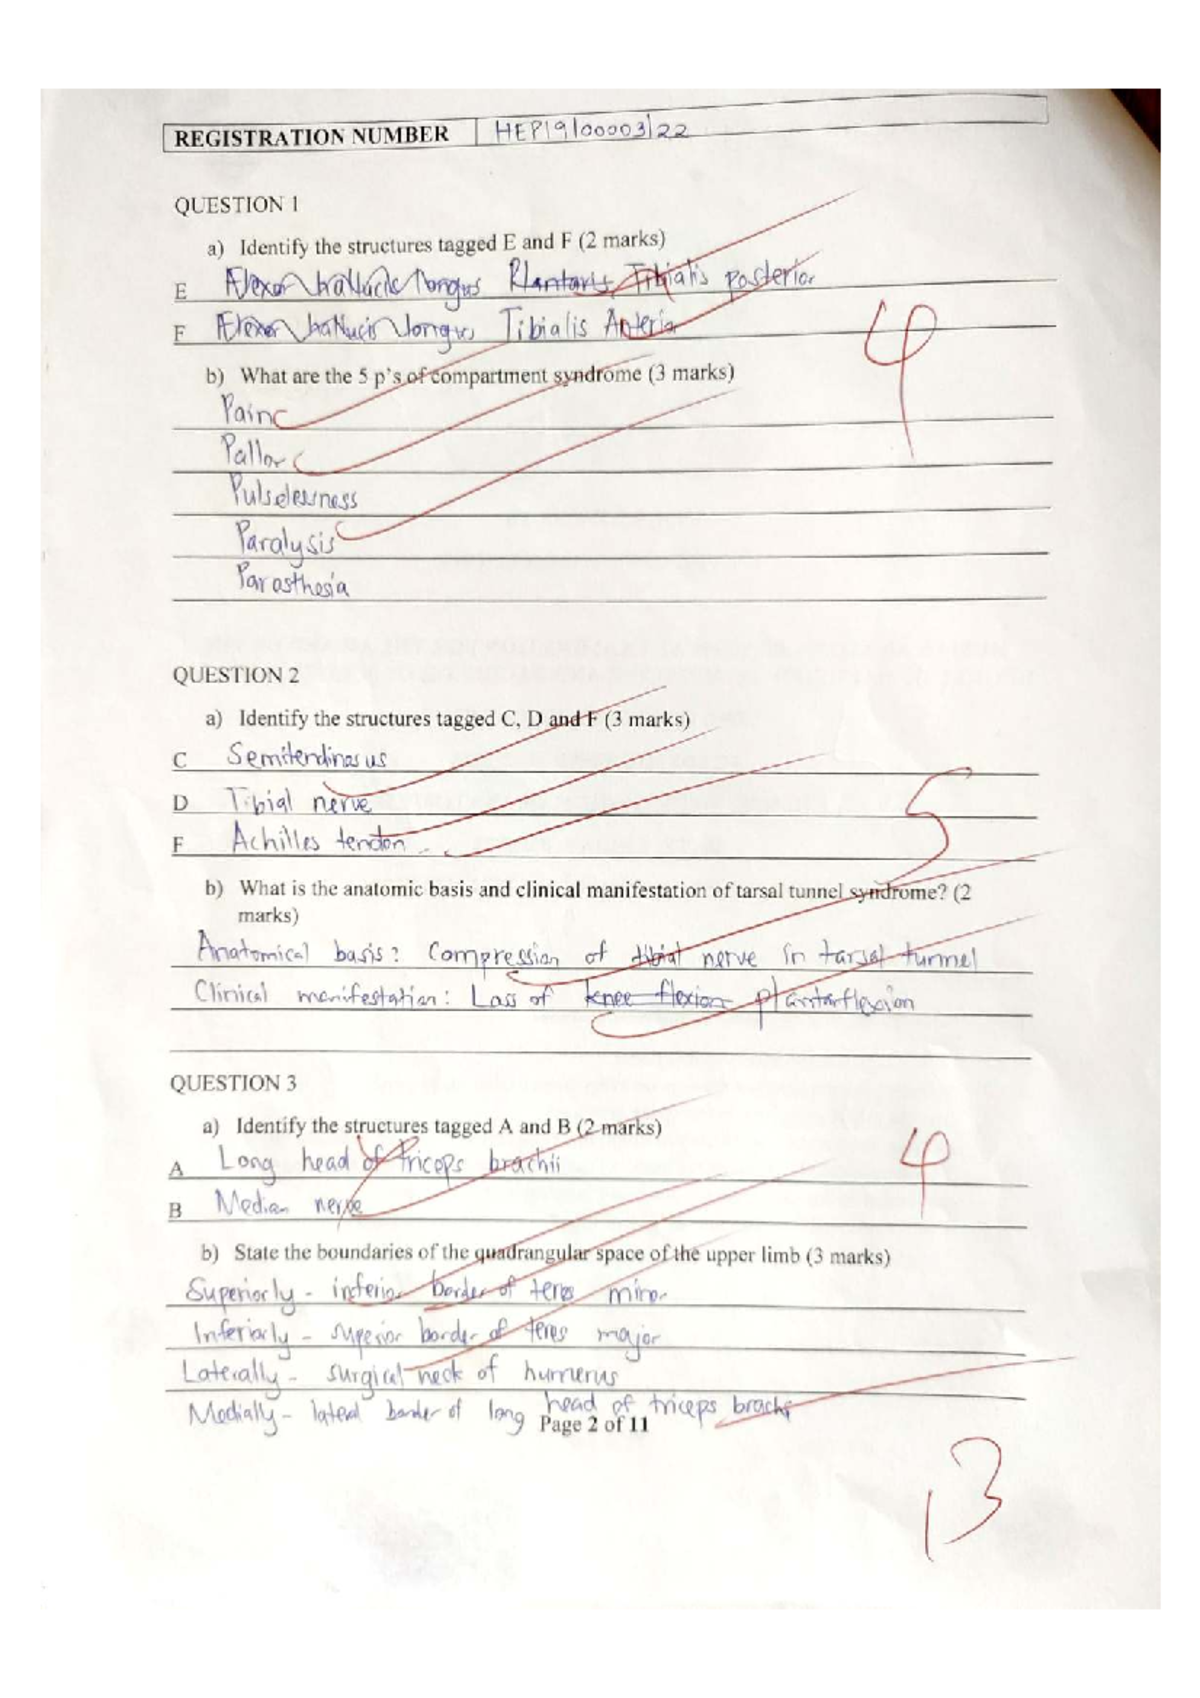 REGISTRATION NUMBER HEP19/00003/22
QUESTION 1
a) Identify the structures tagged E and F (2 marks)
E Flexor hallucis longus Plantaris, Tibialis posterior
F Flexor hallucis longus Tibialis Anterior
b) What are the 5 p's of compartment syndrome (3 marks)
Pain
Pallor
Pulselessness
Paralysis
Parasthesia
4
QUESTION 2
a) Identify the structures tagged C, D and F (3 marks)
C Semitendinosus
D Tibial nerve
F Achilles tendon
5
b) What is the anatomic basis and clinical manifestation of tarsal tunnel syndrome? (2
marks)
Anatomical basis: Compression of tibial nerve in tarsal tunnel
Clinical manifestation: Loss of knee flexion plantarflexion
QUESTION 3
a) Identify the structures tagged A and B (2 marks)
A Long head of triceps brachii
B Median nerve
4
b) State the boundaries of the quadrangular space of the upper limb (3 marks)
Superiorly - inferior border of teres minor
Inferiorly - superior border of teres major
Laterally - surgical neck of humerus
Medially - lateral border of long head of triceps brachii
Page 2 of 11
13